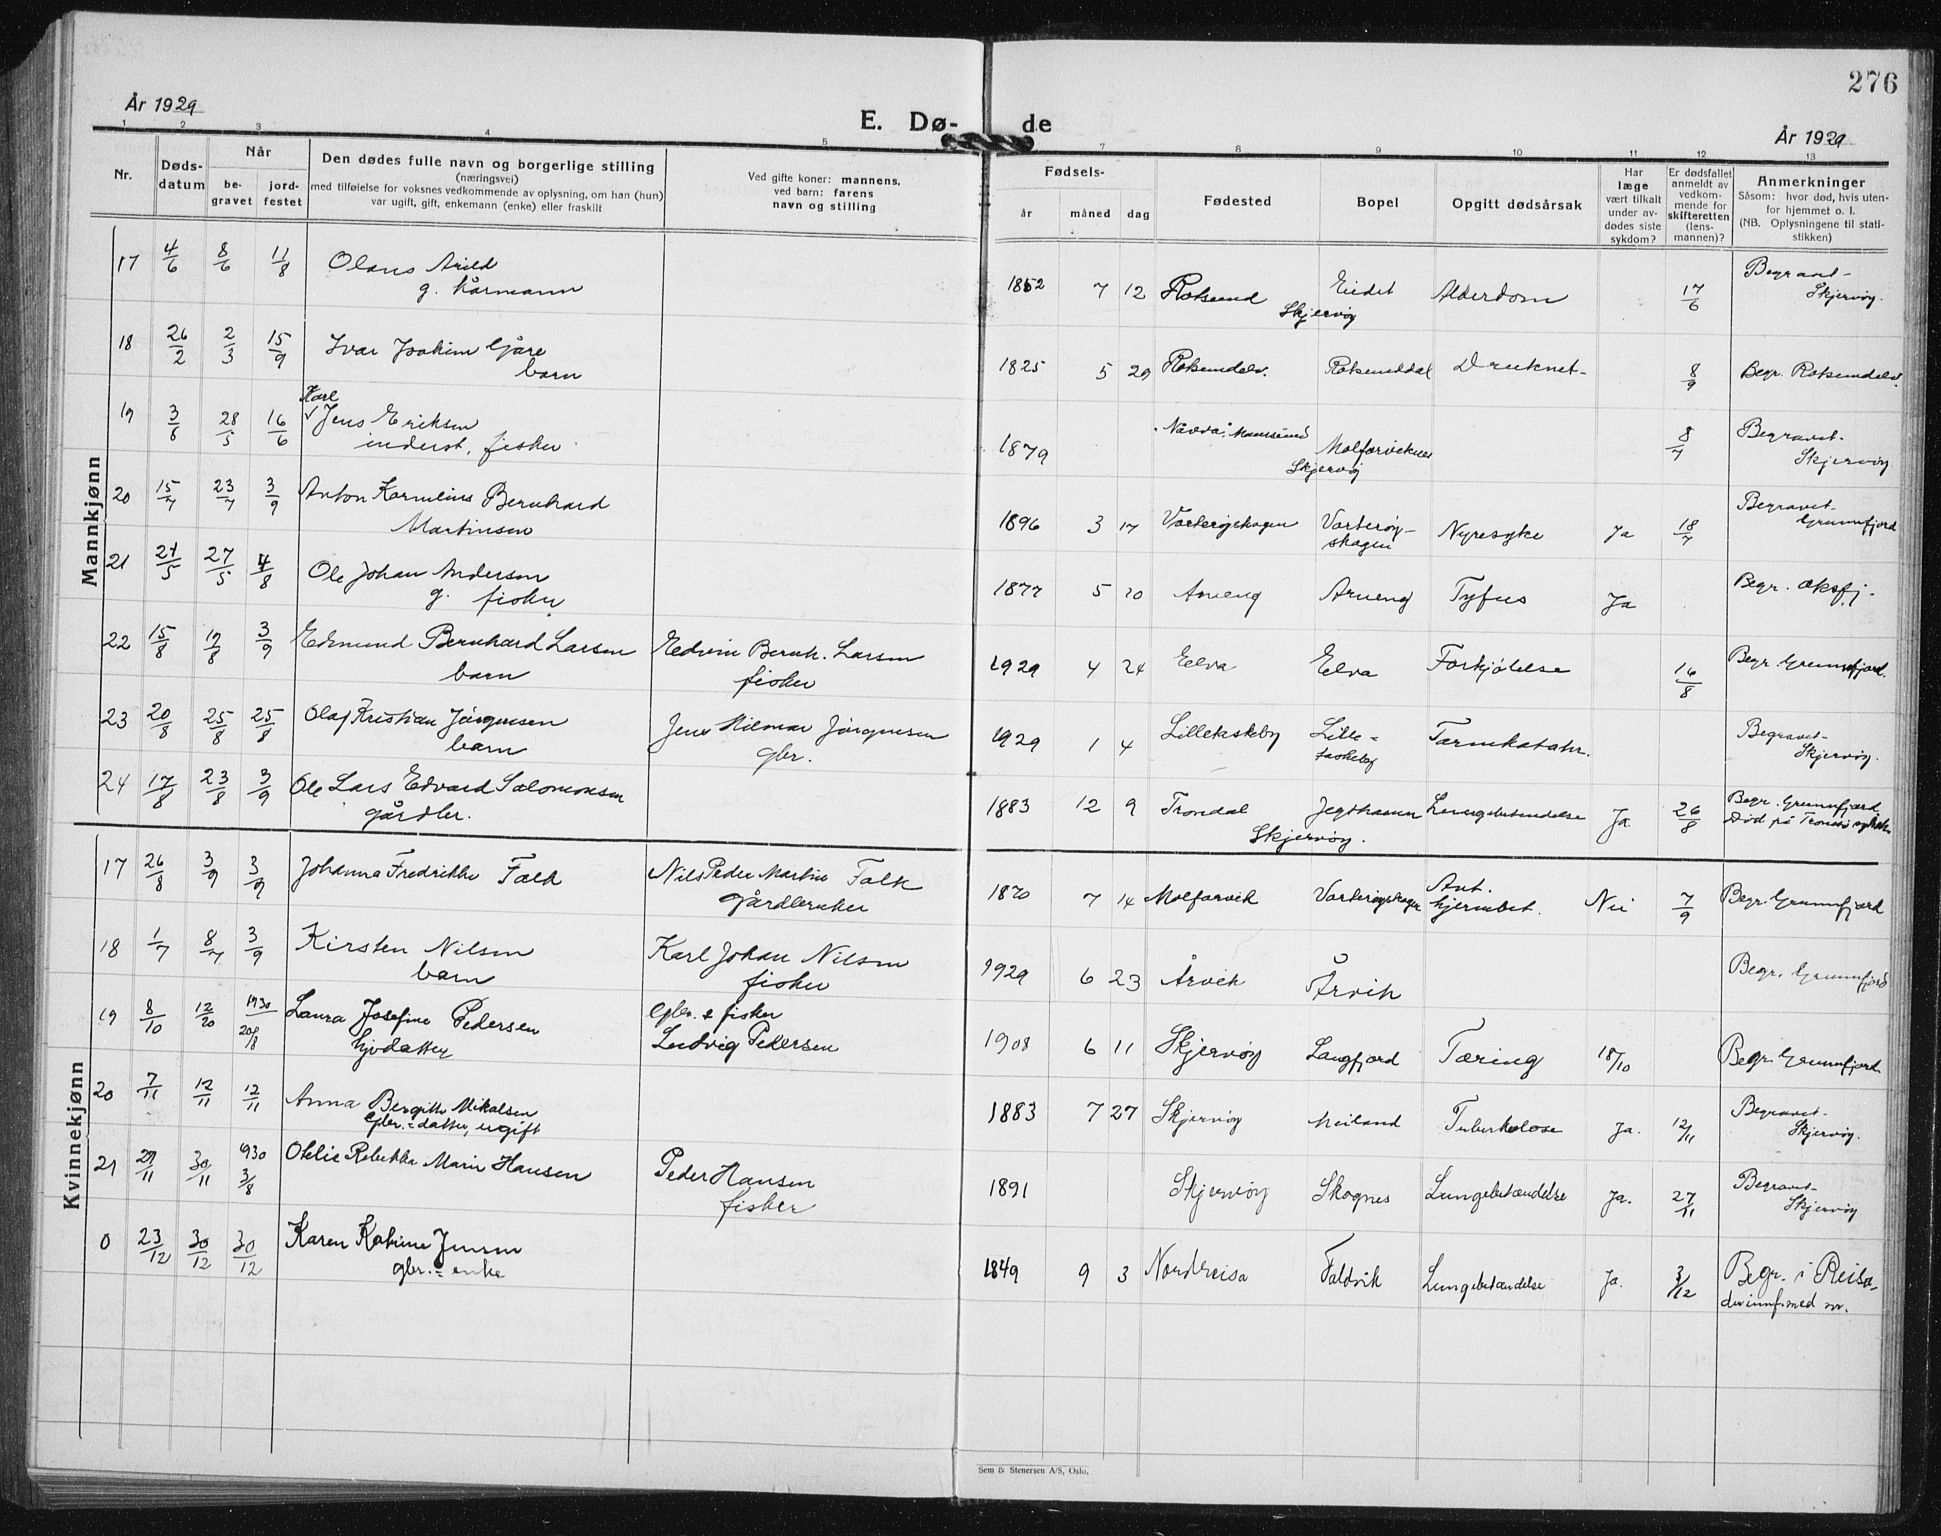 276
År 1929
E. Dø- de
År 1929
1 2 3 4 5 7 8 9 10 11 12 13
Nr.
Døds-
datum
Når
be-
gravet
jord-
festet
Den dødes fulle navn og borgerlige stilling
(næringsvei)
med tilføielse for voksnes vedkommende av oplysning, om han (hun)
var ugift, gift, enkemann (enke) eller fraskilt
Ved gifte koner: mannens,
ved barn: farens
navn og stilling
Fødsels-
år måned dag
Fødested
Bopel
Opgitt dødsårsak
Har
læge
vært tilkalt
under av-
dødes siste
sykdom?
Er dødsfallet
anmeldt av
vedkom-
mende for
skifteretten
(lens-
mannen)?
Anmerkninger
Såsom: hvor død, hvis uten-
for hjemmet o. l.
(NB. Oplysningene til stati-
stikken)
Mannkjønn
17 4/6 8/6 11/8 Olaus Arild
g. kårmann
1852 7 12 Rotsund Skjervøy Eidet Alderdom 17/6 Begravet Skjervøy.
18 26/2 2/3 15/9 Ivar Joakim
barn
1825 5 29 Rotsundelv. Rotsunddal Druknet 8/9 Begr. Rotsundelv.
19 3/6 28/5 16/6 Karl
Jens Eriksen
inderst, fisker
1879 Skjervøy 8/7 Begravet Skjervøy
20 15/7 23/7 3/9 Anton Kornelius Bernhard
Martinsen
1896 3 17 Vorterøyskagen Vorterøy-
skagen Nyresyke Ja 18/7 Begravet Grunnfjord
21 21/5 27/5 4/8 Ole Johan Andersen
g. fisker
1877 5 20 Arneng Tyfus Ja Begr. Oksfj.
22 15/8 19/8 3/9 Edmund Bernhard Larsen
barn
Edvin Bernh. Larsen
fisker
1929 4 24 Elva Elva Forkjølelse 16/8 Begr. Grunnfjord.
23 20/8 25/8 25/8 Olaf Kristian Jørgensen
barn
Jens Hilmar Jørgensen
gbr.
1929 1 4 Lilletaskeby Lille-
taskeby Tarmkatahr. Begravet Skjervøy.
24 17/8 23/8 3/9 Ole Lars Edvard Salomonsen
gårdbr.
1883 12 9 Trondal Skjervøy. Jegthamn Lungebetendelse Ja 26/8 Begr. Grunnfjord
Død på Tromsø sykeh.
Kvinnekjønn
17 26/8 3/9 3/9 Johanna Fredrikke Falk
Nils Peder Martin Falk
gårdbruker
1870 7 14 Molforvik Vorterøyskagen Ant.
hjernebet. Nei 7/9 Begr. Grunnfjord
18 1/7 8/7 3/9 Kirsten Nilsen
barn
Karl Johan Nilsen
fisker
1929 6 23 Årvik Årvik Begr. Grunnfjord
19 8/10 12/20 1930 20/8 Laura Josefine Pedersen
Gbr. & fisker
Ludvig Pedersen
1908 6 11 Skjervøy Langfjord Tæring 18/10 Begr. Grunnfjord
20 7/11 12/11 12/11 Anna Bergitte Mikalsen
Gbr.-datter, ugift
1883 7 27 Skjervøy Meiland Tuberkolose Ja. 12/11 Begravet Skjervøy.
21 27/11 30/11 1930 3/8 Rebekka Marie Hansen
Peder Hansen
fisker
1891 Skjervøy Skognes Lungebetændelse Ja. 27/11 Begravet Skjervøy
0 23/12 30/12 30/12 Karen Katrine Jensen
gbr.- enke
1849 9 3 Nordreisa Faldvik Lungebetændelse Ja. Begr. i Reisa
Sem & Stenersen A/S, Oslo.